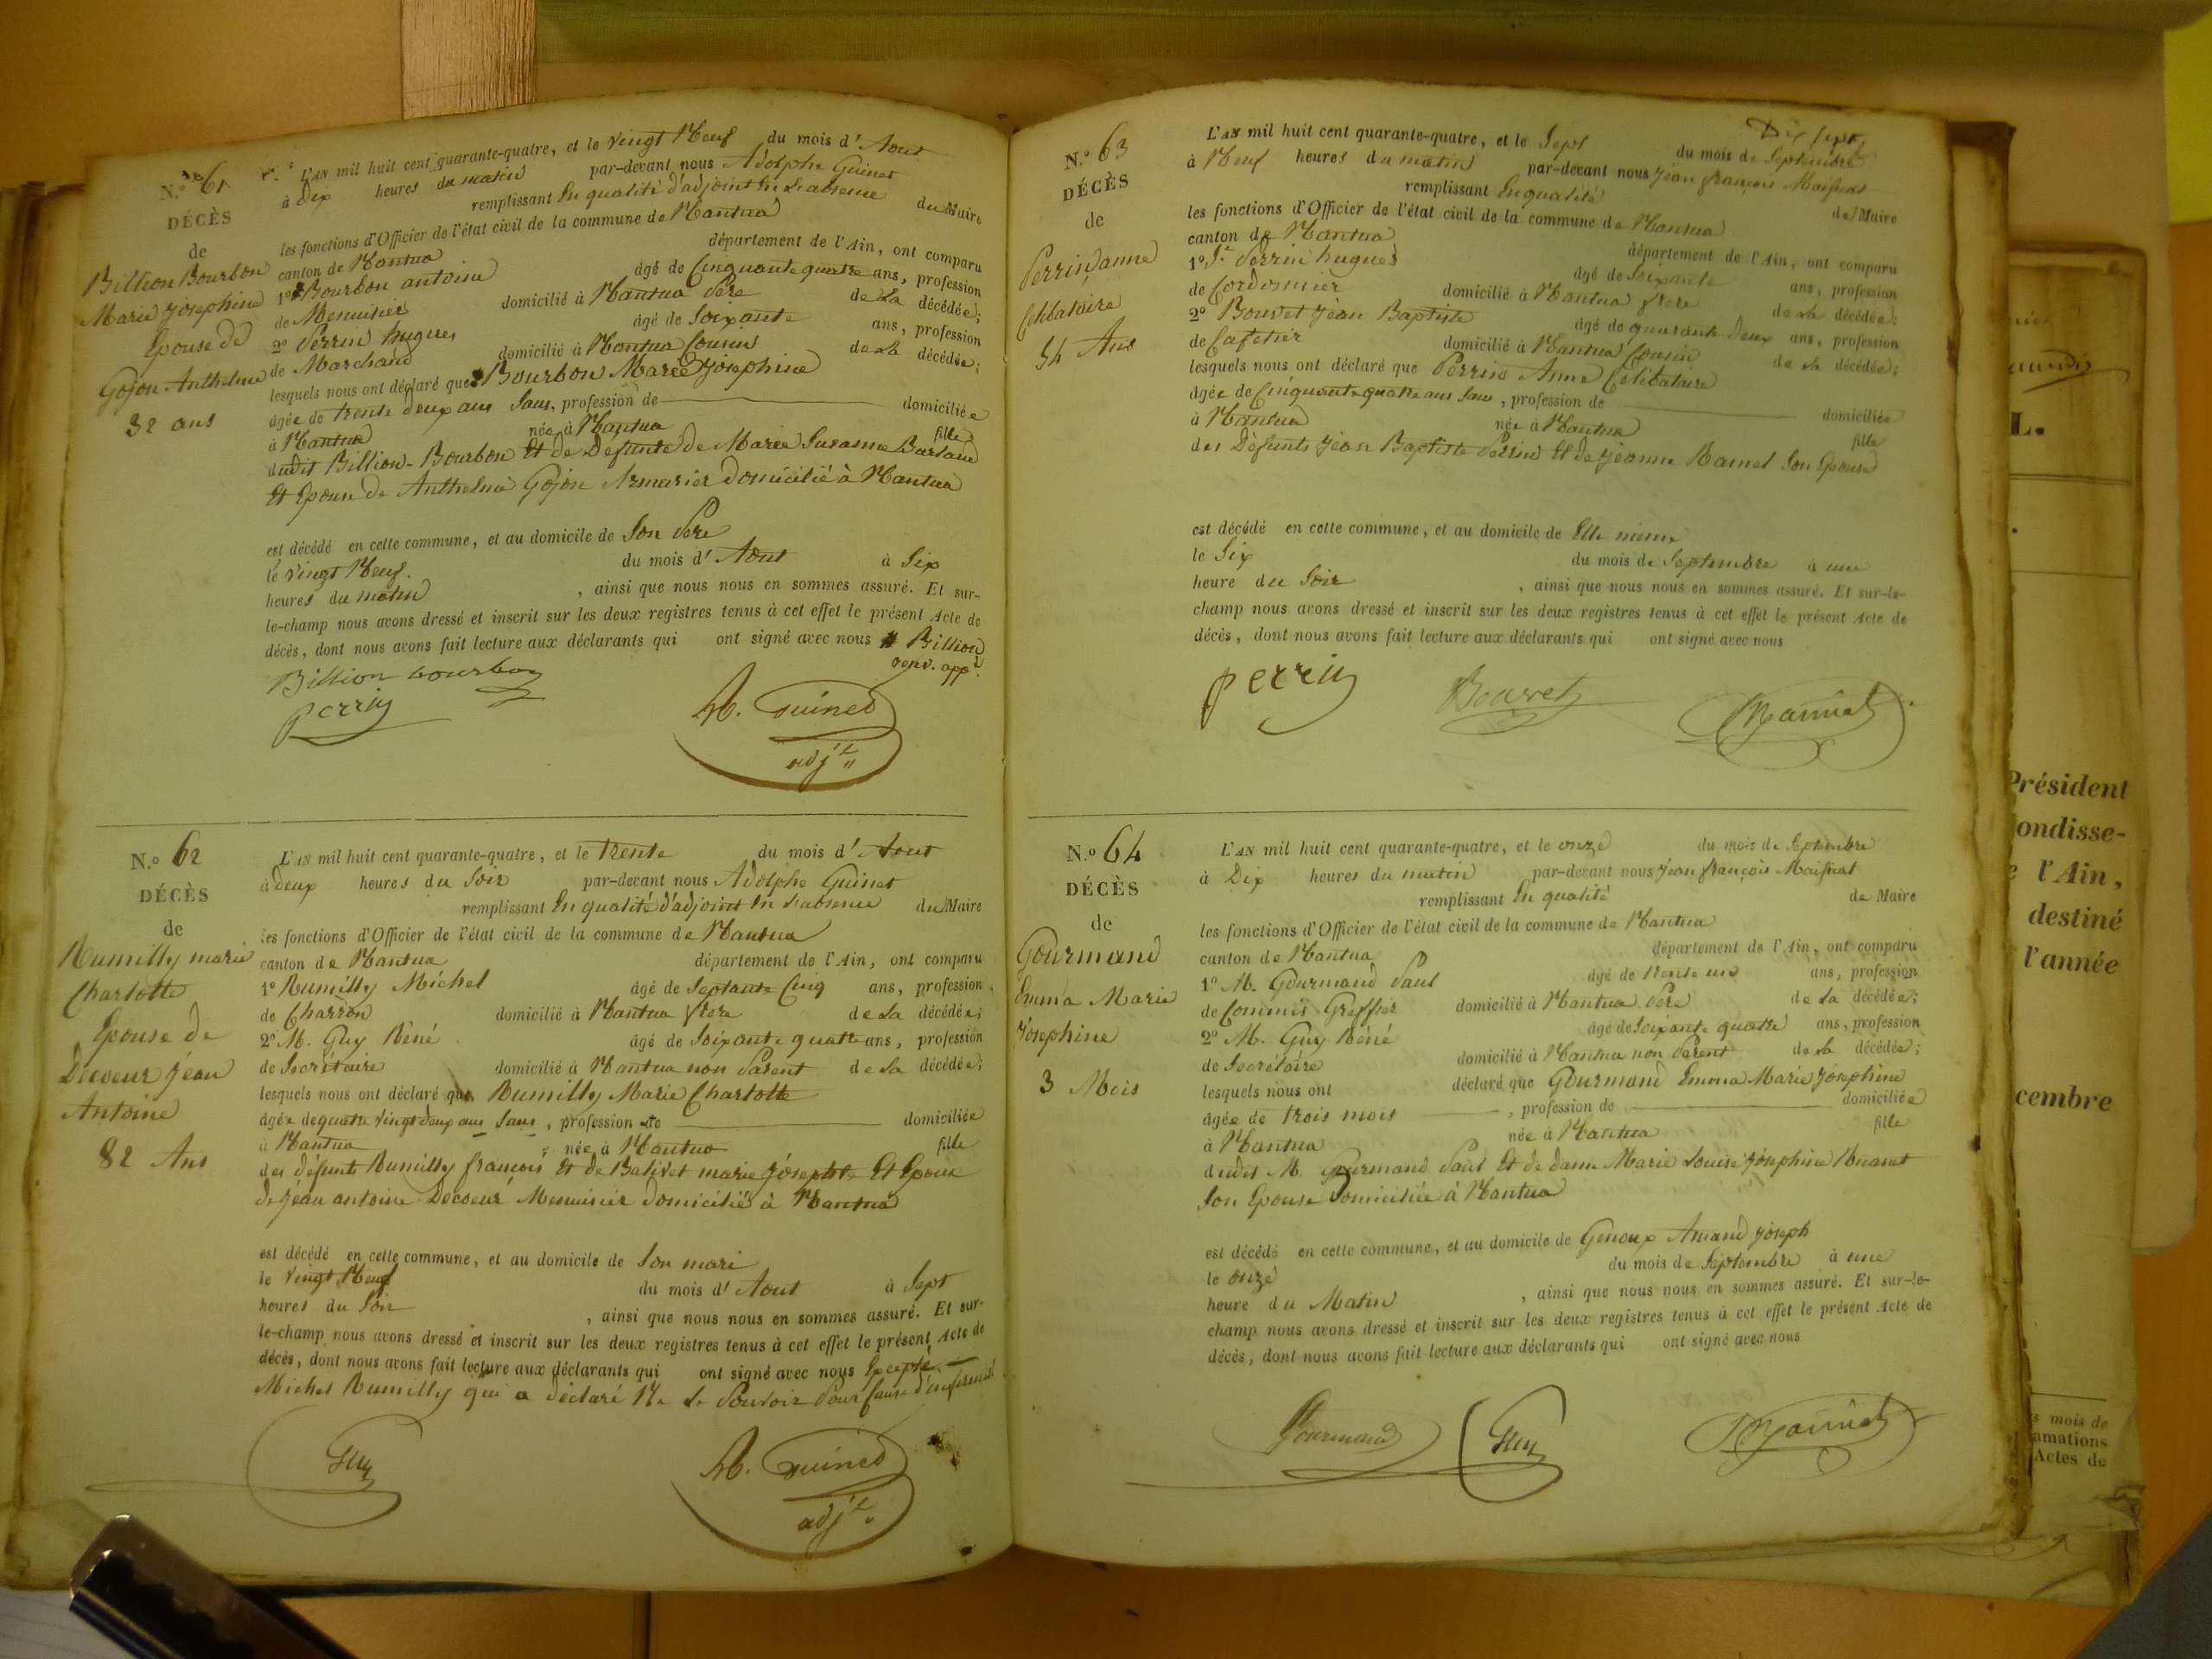 N.o 61
DÉCÈS
de
Billion Bourbon
Marie Josephine
Epouse de
Gojon Anthelme
32 ans
L'AN mil huit cent quarante-quatre, et le vingt Neuf du mois d'Aout
à Dix heures du matin par-devant nous Adolphe Guinet
remplissant En qualité d'adjoint En L'absence du Maire
les fonctions d'Officier de l'état civil de la commune de Nantua
canton de Nantua département de l'Ain, ont comparu
1o Bourbon antoine âgé de Cinquante quatre ans, profession
de Menuisier domicilié à Nantua Père de La décédée;
2o Perrin hugues âgé de Soixante ans, profession
de Marchand domicilié à Nantua Cousin de La décédée;
lesquels nous ont déclaré que Bourbon Marie Josephine
âgée de trente deux ans Sans, profession de domiciliée
à Nantua née à Nantua fille
dudit Billion-Bourbon Et de Defunte de Marie Susanne
Et Epouse De Anthelme Gojon Armurier Domicilié à Nantua
est décédé en cette commune, et au domicile de Son Père
le Vingt Neuf. du mois d'Aout à Six
heures du matin , ainsi que nous nous en sommes assuré. Et sur-
le-champ nous avons dressé et inscrit sur les deux registres tenus à cet effet le présent Acte de
décès, dont nous avons fait lecture aux déclarants qui ont signé avec nous Billion
renv. app.
Billion bourbon
perrin
A. Guinet
adjt
N.o 62
DÉCÈS
de
Rumilly marie
Charlotte
Epouse de
Decoeur Jean
Antoine
82 Ans
L'AN mil huit cent quarante-quatre, et le trente du mois d'Aout
à Deux heures du Soir par-devant nous Adolphe Guinet
remplissant En qualité d'adjoint En L'absence du Maire
les fonctions d'Officier de l'état civil de la commune de Nantua
canton de Nantua département de l'Ain, ont comparu
1o Rumilly Michel âgé de Septante Cinq ans, profession
de Charron domicilié à Nantua frère de La décédée;
2o M. Guy Réné âgé de Soixante quatre ans, profession
de Secrétaire domicilié à Nantua non Parent de La décédée;
lesquels nous ont déclaré que Rumilly Marie Charlotte
âgée de quatre vingt deux ans Sans, profession de domiciliée
à Nantua née à Nantua fille
des défunt Rumilly françois Et de Balivet marie Josephte Et Epouse
de Jean antoine Decoeur Menuisier domicilié à Nantua
est décédé en cette commune, et au domicile de Son mari
le vingt Neuf du mois d'Aout à Sept
heures du Soir , ainsi que nous nous en sommes assuré. Et sur-
le-champ nous avons dressé et inscrit sur les deux registres tenus à cet effet le présent Acte de
décès, dont nous avons fait lecture aux déclarants qui ont signé avec nous Excepté
Michel Rumilly qui a déclaré Ne Le Pouvoir Pour Cause d'infirmité
Guy
A. Guinet
adjt
Dix Sept
N.o 63
DÉCÈS
de
Perrin anne
Célibataire
54 Ans
L'AN mil huit cent quarante-quatre, et le Sept du mois de Septembre
à Neuf heures du matin par-devant nous Jean françois Maissiat
remplissant En qualité de Maire
les fonctions d'Officier de l'état civil de la commune de Nantua
canton de Nantua département de l'Ain, ont comparu
1o Sr Perrin hugues âgé de Soixante ans, profession
de Cordonnier domicilié à Nantua frère de La décédée;
2o Bouvet Jean Baptiste âgé de quarante Deux ans, profession
de Cafetier domicilié à Nantua Cousin de La décédée;
lesquels nous ont déclaré que Perrin Anne Célibataire
âgée de Cinquante quatre ans Sans, profession de domiciliée
à Nantua née à Nantua fille
des Défunts Jean Baptiste Perrin Et de Jeanne Ramel Son Epouse
est décédé en cette commune, et au domicile de Elle même
le Six du mois de Septembre à une
heure du Soir , ainsi que nous nous en sommes assuré. Et sur-le-
champ nous avons dressé et inscrit sur les deux registres tenus à cet effet le présent Acte de
décès, dont nous avons fait lecture aux déclarants qui ont signé avec nous
perrin
Bouvet
Maissiat
N.o 64
DÉCÈS
de
Gourmand
Emma Marie
Josephine
3 Mois
L'AN mil huit cent quarante-quatre, et le onze du mois de Septembre
à Dix heures du matin par-devant nous Jean françois Maissiat
remplissant En qualité de Maire
les fonctions d'Officier de l'état civil de la commune de Nantua
canton de Nantua département de l'Ain, ont comparu
1o M. Gourmand Paul âgé de trente un ans, profession
de Commis Greffier domicilié à Nantua Père de La décédée;
2o M. Guy Réné âgé de Soixante quatre ans, profession
de Secrétaire domicilié à Nantua non Parent de La décédée;
lesquels nous ont déclaré que Gourmand Emma Marie Josephine
âgée de trois mois , profession de domiciliée
à Nantua née à Nantua fille
dudit M. Gourmand Paul Et de dame Marie Louise Josephine
Son Epouse Domiciliée à Nantua
est décédé en cette commune, et au domicile de Genoux Amand Joseph
le onze du mois de Septembre à une
heure du Matin , ainsi que nous nous en sommes assuré. Et sur-le-
champ nous avons dressé et inscrit sur les deux registres tenus à cet effet le présent Acte de
décès, dont nous avons fait lecture aux déclarants qui ont signé avec nous
Gourmand
Guy
Maissiat
L.
Président
ondisse-
l'Ain,
destiné
l'année
cembre
s mois de
amations
Actes de